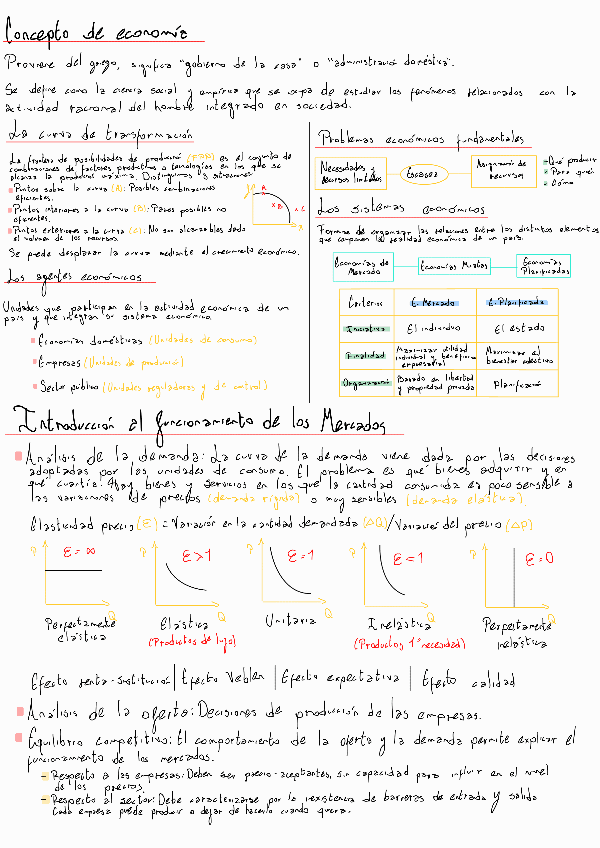 Concepto de economía
Proviene del griego, significa "gobierno de la casa" o "administració doméstica".
Se define como la ciencia social y empírica que se ocupa de estudiar los fenómenos relacionados con la
actividad racional del hombre integrado en sociedad.
La curva de transformación
La frontera de posibilidades de producció (FPP) es el conjunto de
combinaciones de factores productivos o tecnologías en los que se
alcanza la producció máxima. Distinguimos 3 situaciones
Puntos sobre la curva (A): Posibles combinaciones
eficientes.
Puntos interiores a la curva (B): Pares posibles no
eficientes.
Puntos exteriores a la curva (C): No son alcanzables dado
el volumen de los recursos.
Se puede desplazar la curva mediante el crecimiento económico.
Y A
x B x C
X
Los agentes económicos
Unidades que participan en la actividad económica de un
país y que integran su sistema económico
Economías domésticas (Unidades de consumo)
Empresas (Unidades de producció)
Sector público (Unidades reguladoras y de control)
Problemas económicos fundamentales
Necesidades y
recursos limitados
Escasez
Asignació de
recursos
Qué producir
Para quién
Cómo
Los sistemas económicos
Formas de organizar las relaciones entre los distintos elementos
que componen la realidad económica de un país.
Economías de
Mercado
Economías Mixtas
Economías
Planificadas
Criterios E. Mercado E. Planificada
Iniciativa El individuo El estado
Finalidad Maximizar utilidad
individual y beneficio
empresarial
Maximizar el
bienestar colectivo
Organizació Basado en libertad
y propiedad privada
Planificació
Introducción al funcionamiento de los Mercados
Análisis de la demanda: La curva de la demanda viene dada por las decisiones
adoptadas por las unidades de consumo. El problema es qué bienes adquirir y en
qué cuantía. Hay bienes y servicios en los que la cantidad consumida es poco sensible a
las variaciones de precios (demanda rígida) o muy sensibles (demanda elástica).
Elasticidad precio (E) = Variación en la cantidad demandada (ΔQ) / Variaciones del precio (ΔP)
P E = ∞ Q
P E > 1 Q
P E = 1 Q
P E = 1 Q
P E = 0 Q
Perfectamente
elástica
Elástica
(Productos de lujo)
Unitaria
Inelástica
(Productos 1ª necesidad)
Perfectamente
inelástica
Efecto renta-sustitución | Efecto Veblen | Efecto expectativa | Efecto calidad
Análisis de la oferta: Decisiones de producción de las empresas.
Equilibrio competitivo: El comportamiento de la oferta y la demanda permite explicar el
funcionamiento de los mercados.
– Respecto a las empresas: Deben ser precio-aceptantes, sin capacidad para influir en el nivel
de los precios.
– Respecto al sector: Debe caracterizarse por la inexistencia de barreras de entrada y salida
Cada empresa puede producir o dejar de hacerlo cuando quiera.